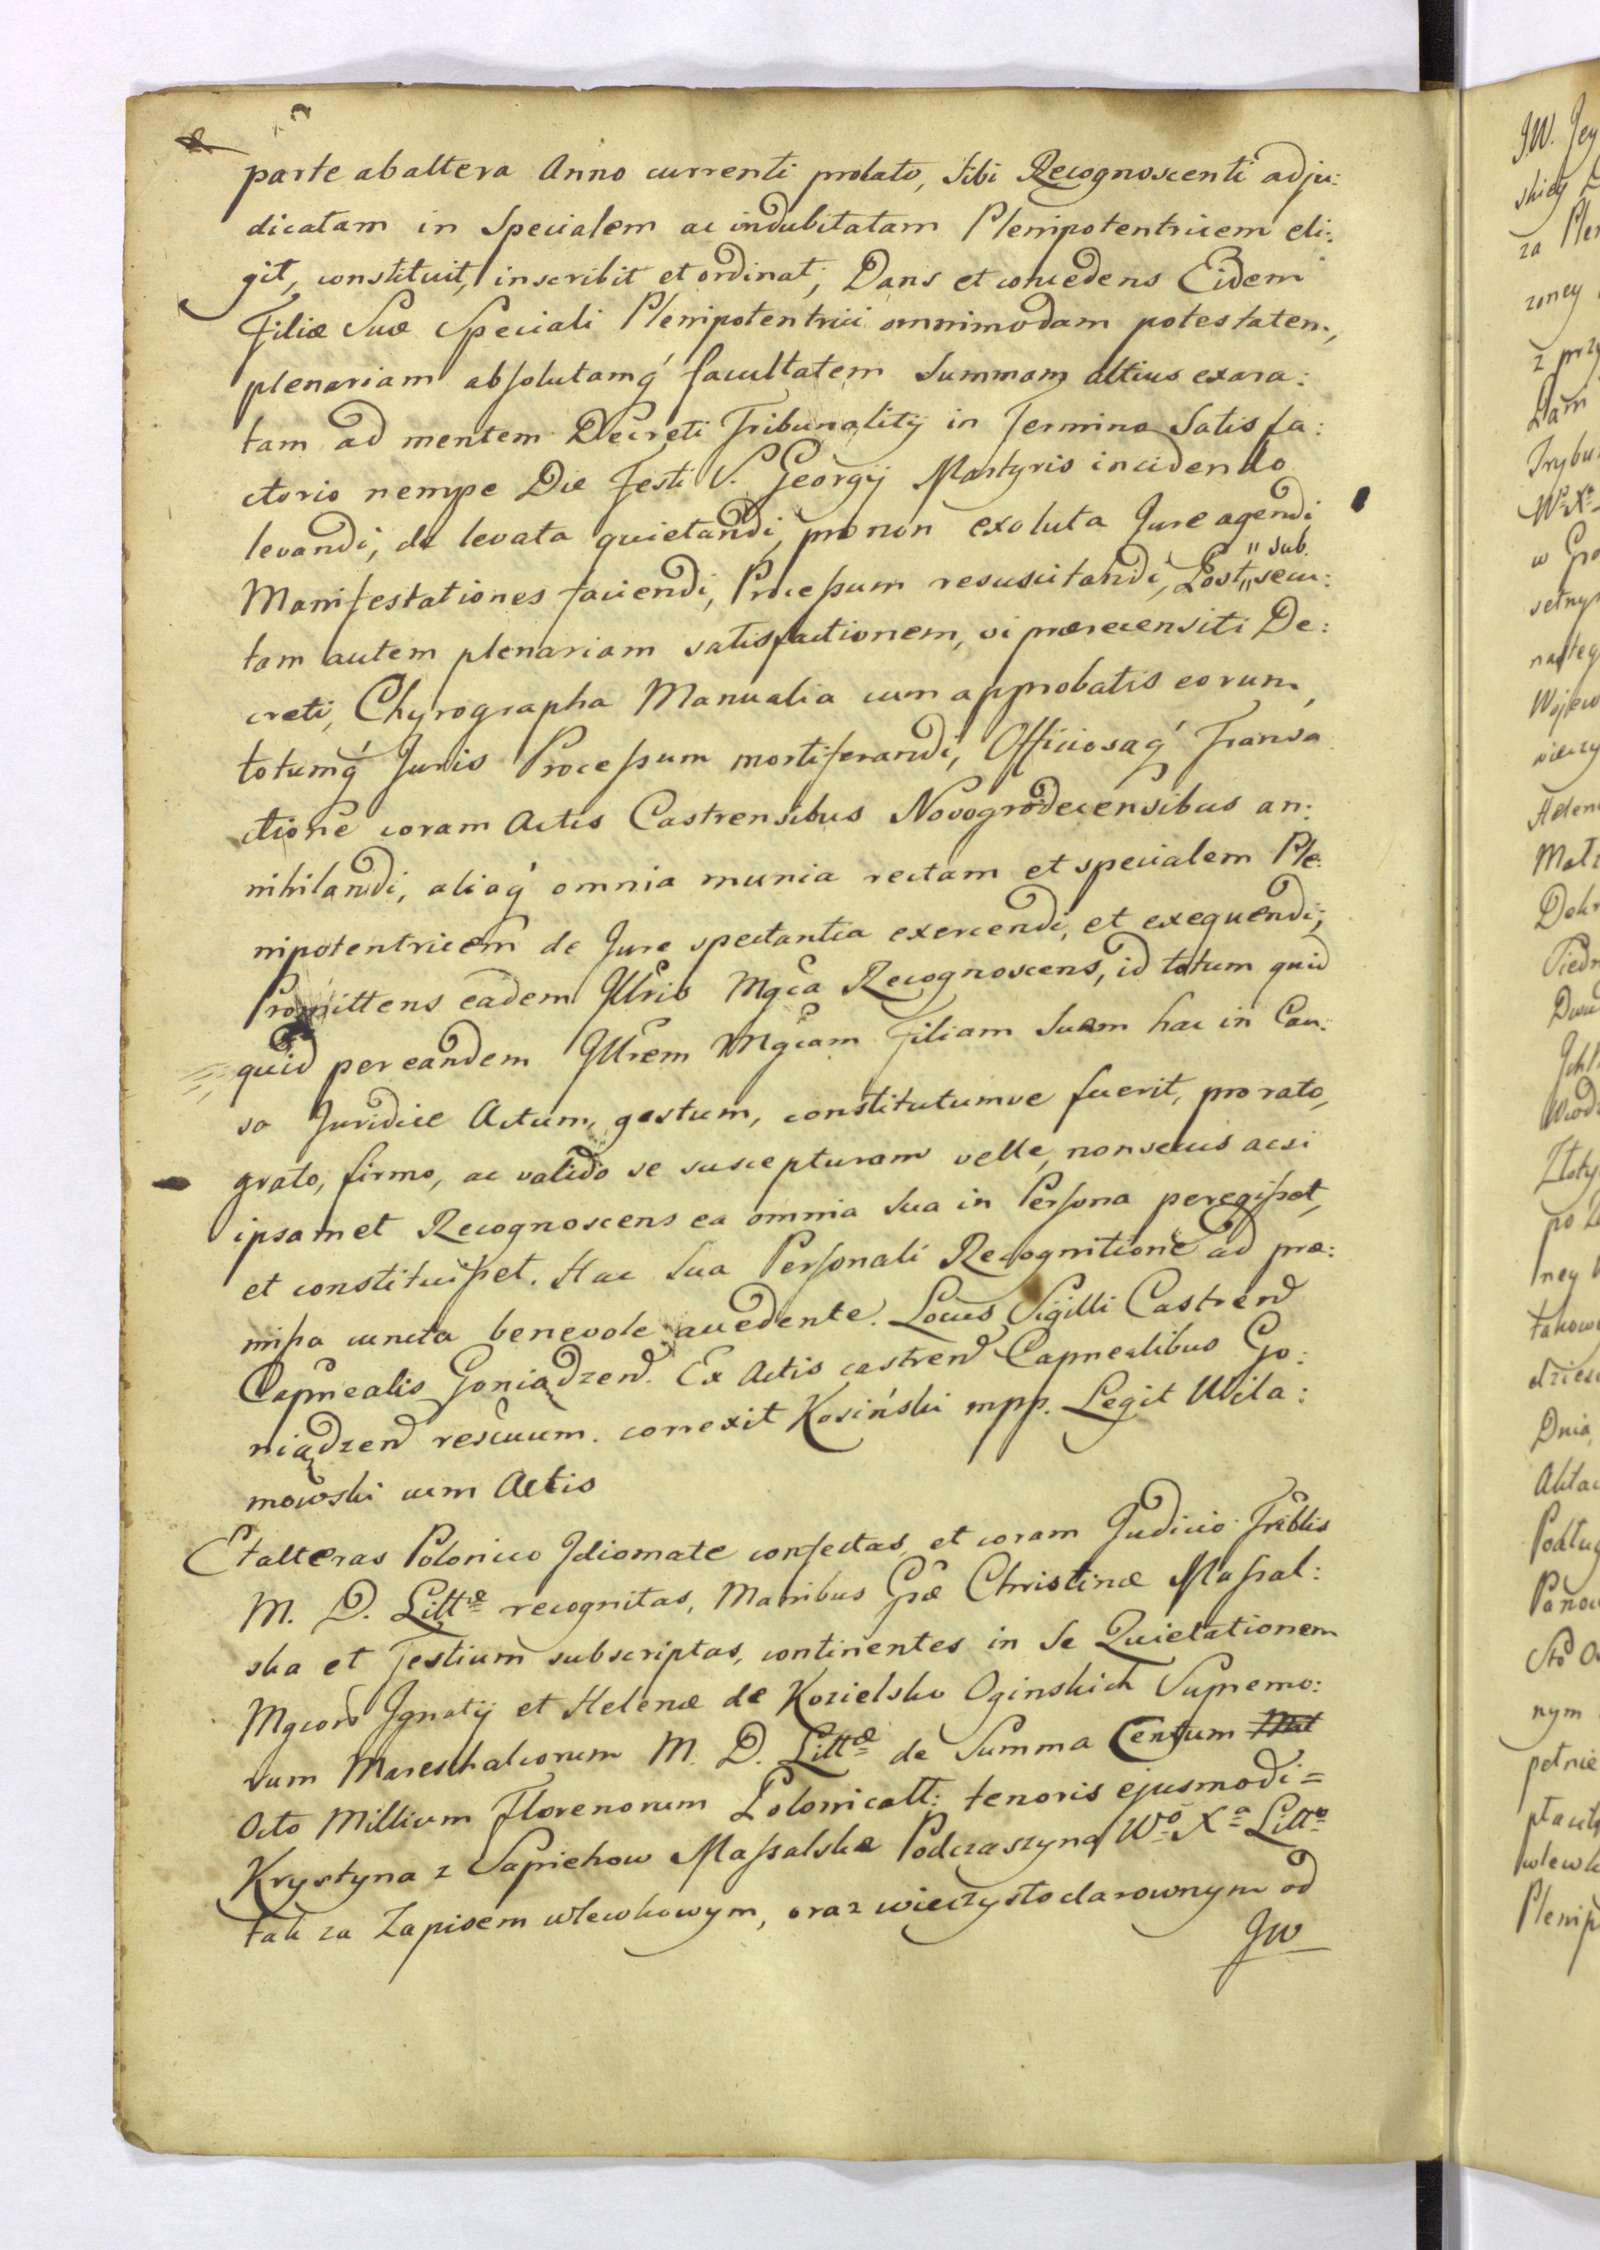 parte ab altera Anno currenti prolato, sibi Recognoscenti adju:
dicatam in Specialem ac indubitatam Plenipotentricem eli:
git, constituit, inscribit et ordinat, Dans et concedens Eidem
Filiæ Suæ Speciali Plenipotentrici omnimodam potestatem,
plenariam absolutamq́ facultatem Summam altius exara:
tam ad mentem Decreti Tribunalitij in Termino Satisfa:
ctorio nempe Die Festi S. Georgij Martyris incidendo
levandi, de levata quietandi, pro non exoluta Jure agendi
Manifestationes faciendi, Processum resuscitandi, Post " sub. " secu:
tam autem plenariam satisfactionem, vi præcensiti De:
creti, Chyrographa Manualia cum approbatis eorum,
totumq́ Juris Processum mortiferandi, Officiosaq́ Transa
ctione coram Actis Castrensibus Novogrodecensibus an:
nihilandi, aliaq́ omnia munia rectam et specialem Ple:
nipotentricem de Jure spectantia exercendi, et exequendi;
Promittens eadem Jllris Mgca Recognoscens, id totum quid
quid per eandem Jllrem Mgcam Filiam Suam hac in Cau:
sa Juridice Actum, gestum, constitutumve fuerit, pro rato,
grato, firmo, ac valido se suscepturam velle, non secus acsi
ipsamet Recognoscens ea omnia Sua in Persona peregisset,
et constituisset. Hac Sua Personali Recognitione ad præ:
missa cuncta benevole accedente. Locus Sigilli Castrend
Capnealis Goniądzend. Ex Actis castrend Capnealibus Go:
niądzend rescuum. correxit Kosiński mpp. Legit Wila:
mowski cum Actis
Et alteras Polonico Jdiomate confectas, et coram Judicio Triblis
M. D. Littæ recognitas, Manibus Gsæ Christinæ Massal:
ska et Testium subscriptas, continentes in se Quietationem
Mgcorū Jgnatij et Helenæ de Kozielsko Oginskich Supremo:
rum Mareschalcorum M. D. Littæ de Summa Centum Mil
Octo Millium Florenorum Polonicall: tenoris ejusmodi =
Krystyna z Sapiehow Massalska Podczaszyna Wo Xa Litto
tak za Zapisem wlewkowym, oraz wieczysto darownym od
JW